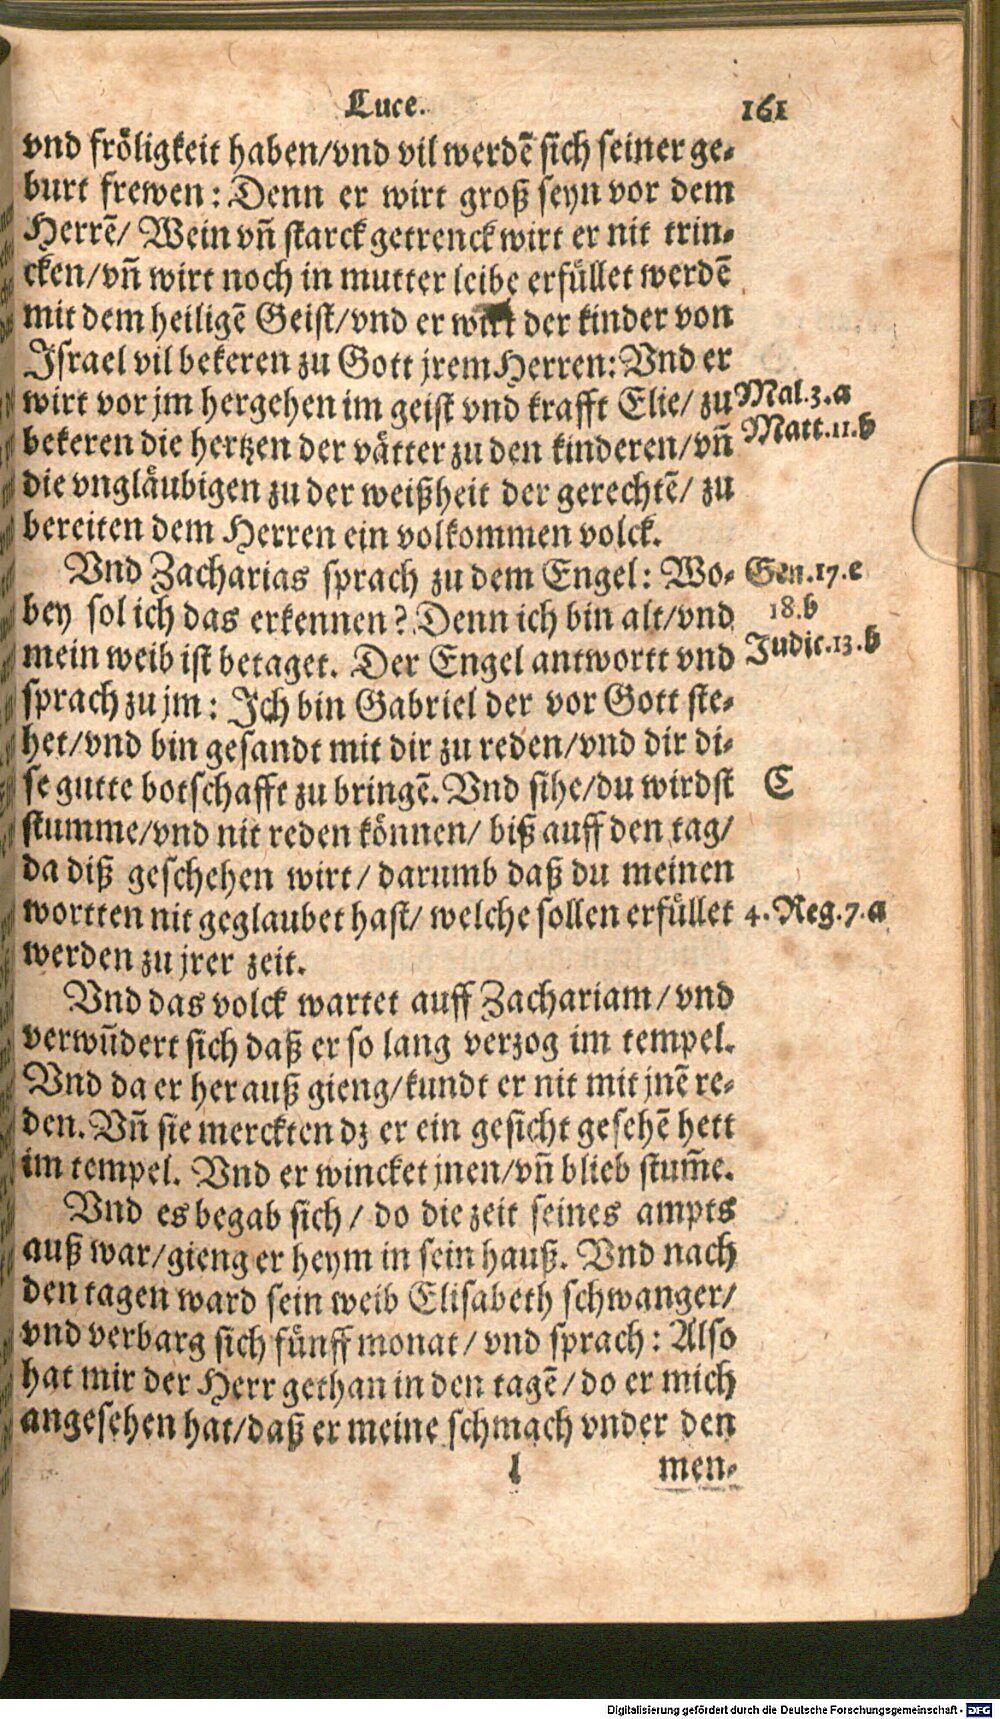 Luce. 161
vnd fröligkeit haben/vnd vil werdẽ sich seiner ge-
burt frewen: Denn er wirt groß seyn vor dem
Herrẽ/ Wein vñ starck getrenck wirt er nit trin-
cken/vñ wirt noch in mutter leibe erfüllet werdẽ
mit dem heiligẽ Geist/vnd er wirt der kinder von
Israel vil bekeren zu Gott jrem Herren: Vnd er
wirt vor jm hergehen im geist vnd krafft Elie/ zu
Mal.3.a
bekeren die hertzen der vätter zu den kinderen/vñ
Matt.11.b
die vngläubigen zu der weißheit der gerechtẽ/ zu
bereiten dem Herren ein volkommen volck.
Vnd Zacharias sprach zu dem Engel: Wo-
Gen.17.c
bey sol ich das erkennen? Denn ich bin alt/vnd
18.b
mein weib ist betaget. Der Engel antwortt vnd
Judic.13.b
sprach zu jm: Ich bin Gabriel der vor Gott ste-
het/vnd bin gesandt mit dir zu reden/vnd dir di-
se gutte botschafft zu bringẽ. Vnd sihe/du wirdst
C
stumme/vnd nit reden können/ biß auff den tag/
da diß geschehen wirt/ darumb daß du meinen
wortten nit geglaubet hast/ welche sollen erfüllet
4.Reg.7.a
werden zu jrer zeit.
Vnd das volck wartet auff Zachariam/vnd
verwũdert sich daß er so lang verzog im tempel.
Vnd da er her auß gieng/kundt er nit mit jnẽ re-
den. Vñ sie merckten dz er ein gesicht gesehẽ hett
im tempel. Vnd er wincket jnen/vñ blieb stum̃e.
Vnd es begab sich/ do die zeit seines ampts
auß war/gieng er heym in sein hauß. Vnd nach
den tagen ward sein weib Elisabeth schwanger/
vnd verbarg sich fünff monat/ vnd sprach: Also
hat mir der Herr gethan in den tagẽ/do er mich
angesehen hat/daß er meine schmach vnder den
l men-
Digitalisierung gefördert durch die Deutsche Forschungsgemeinschaft - DFG